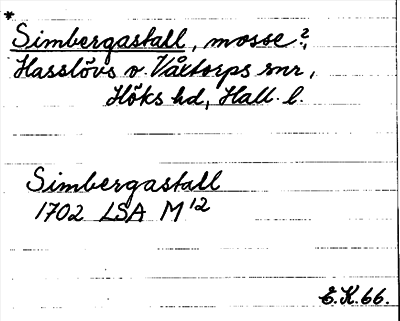 *
Simbergastall, mosse?,
Hasslövs o. Våxtorps snr,
Höks hd, Hall. l.
Simbergastall
1702 LSA M12
E.K.66.